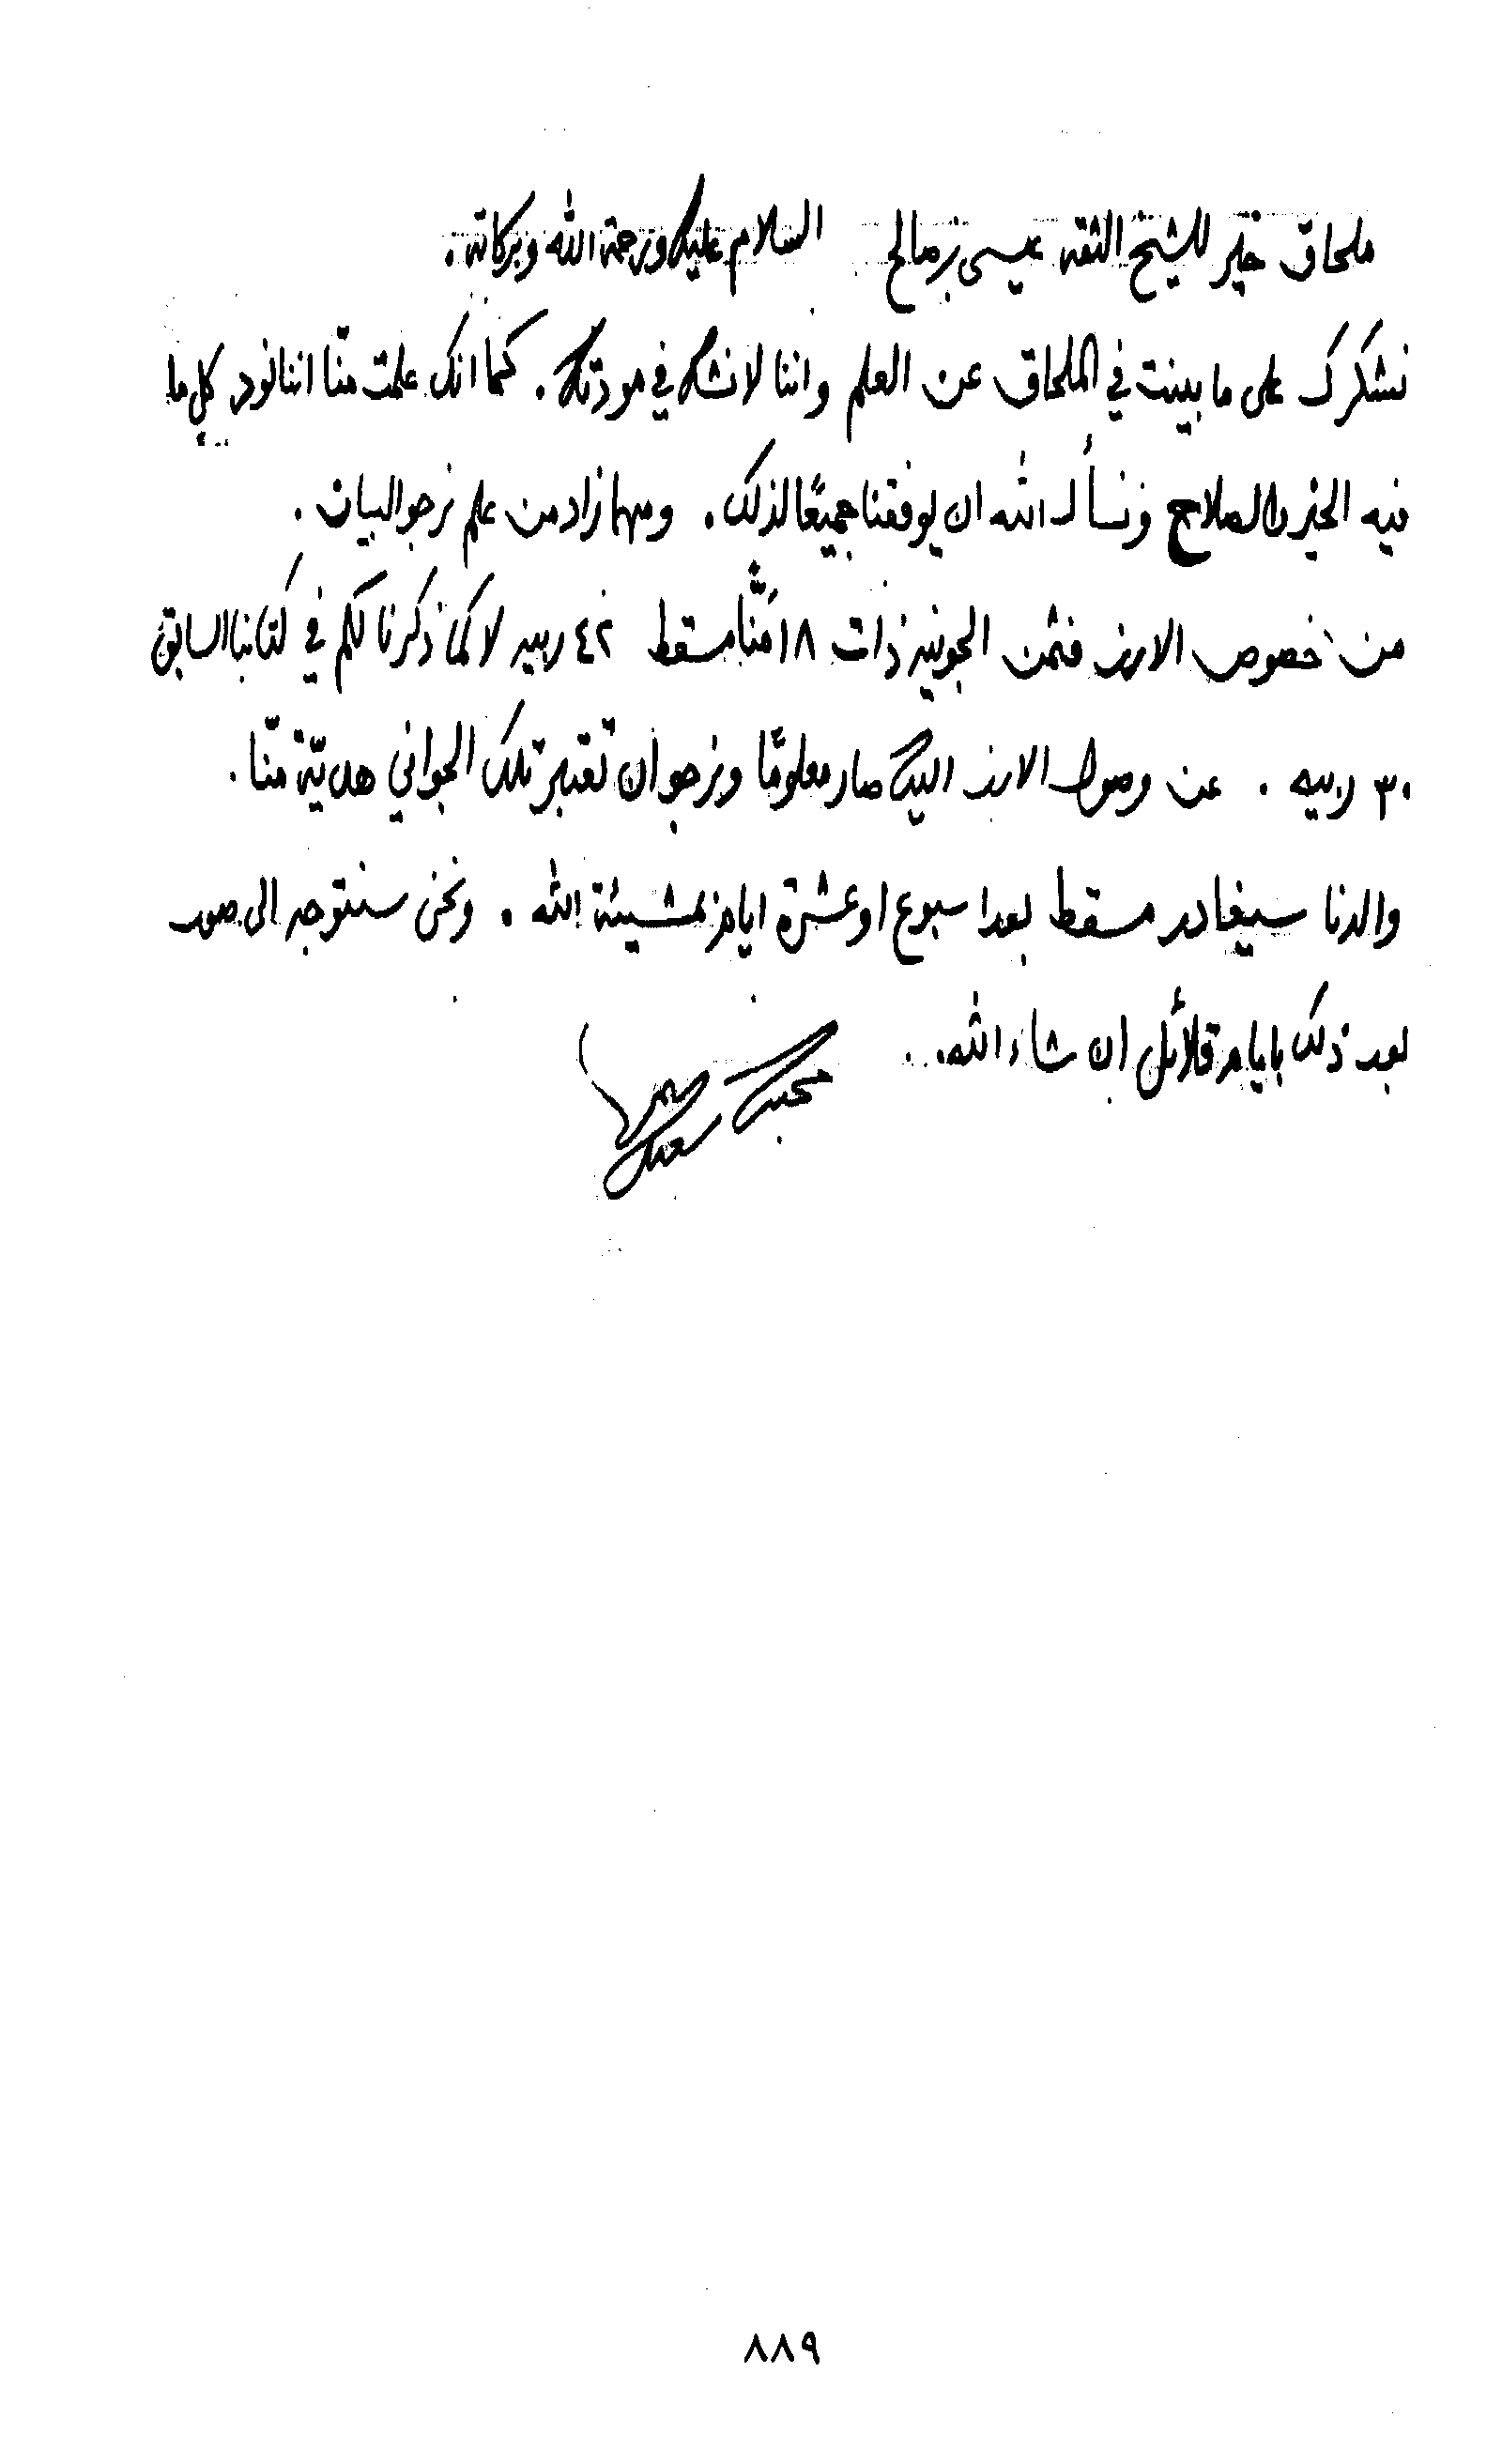 ملحاق خير للشيخ الثقه عيسى بن صالح السلام عليك ورحمة الله وبركاته .
نشكرك على ما بينت في الملحاق عن العلم واننا لا نشك في مودتك . كما انك علمت منّا اننا نود كل ما
فيه الخير والصلاح ونسأل الله ان يوفقنا جميعًا لذلك . ومهما زاد من علم نرجو البيان .
من خصوص الارز فثمن الجونيه ذات ١٨ مَنًّا مسقط ٤٢ ربيه لا كما ذكرنا لكم في كتابنا السابق
٣٠ ربيه . عن وصول الارز اليك صار معلومًا ونرجو ان تعتبر تلك الجواني هديّة منّا .
والدنا سيغادر مسقط بعد اسبوع او عشرة ايام بمشيئة الله . ونحن سنتوجه الى صور
بعد ذلك بايام قلائل ان شاء الله .
محبك
سعيد
٨٨٩